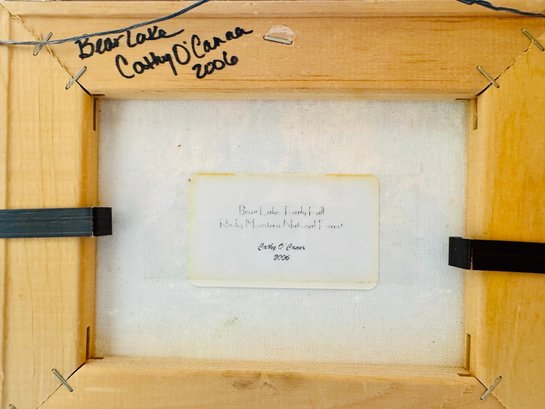 Bear Lake
Cathy O'Canna
2006
Bear Lake Early Fall
Rocky Mountain National Forest
Cathy O' Canna
2006